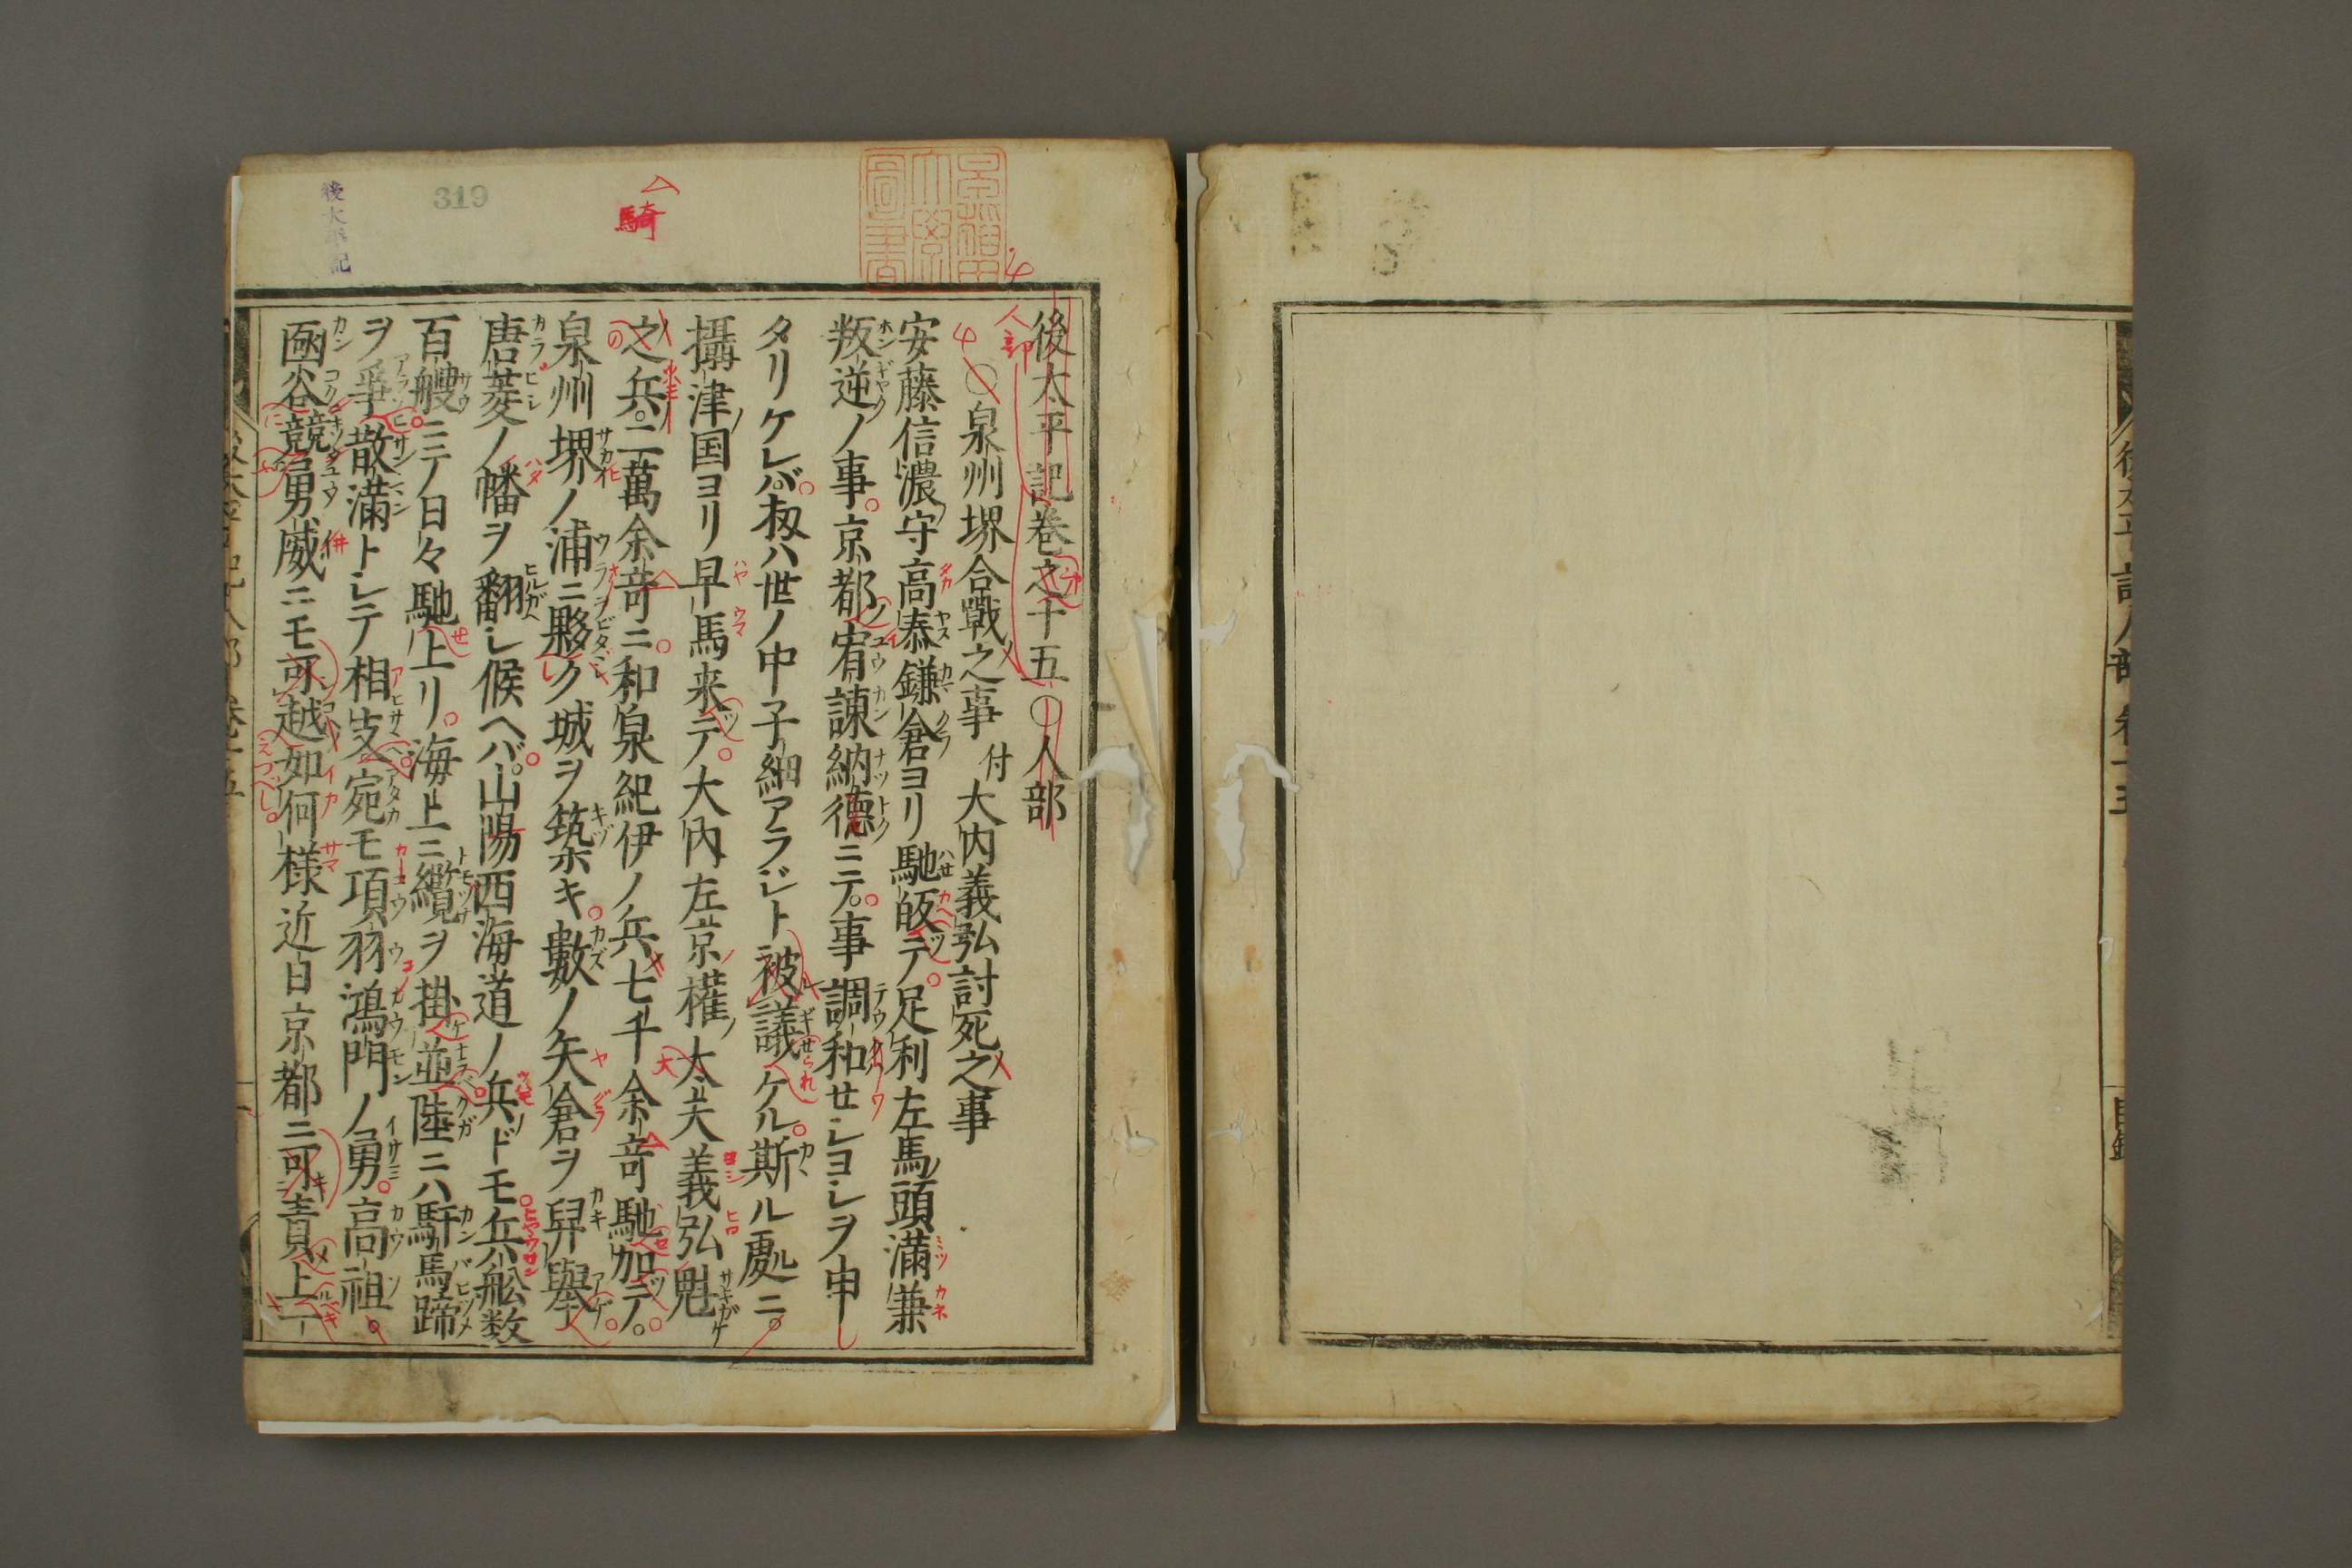 後太平記卷之十五〇人部
〇泉州堺合戰之事 付 大内義弘討死之事
安藤信濃守高泰鎌倉ヨリ馳皈テ。足利左馬頭滿兼
叛逆ノ事。京都ノ宥諫納德ニテ。事調和せシヨシヲ申
タリケレバ。扨ハ世ノ中子細アラジト被議ケル。斯ル處ニ。
攝津国ヨリ早馬来テ。大内左京權大夫義弘魁
之兵。二萬余竒ニ和泉紀伊ノ兵七千余竒馳加テ。
泉州堺ノ浦ニ夥ク城ヲ築キ數ノ矢倉ヲ舁擧
唐菱ノ幡ヲ翻シ候ヘバ。山陽西海道ノ兵ドモ兵舩数
百艘ニテ日々馳上リ。海上ニ纜ヲ掛並陸ニハ馯馬蹄
ヲ爭散滿トシテ相支宛モ項羽鴻門ノ勇。高祖
凾谷競勇威ニモ可越如何様近日京都ニ可責上
騎
319
後太平記
後太平記人部 卷十五
後太平記人部 卷十五 目録